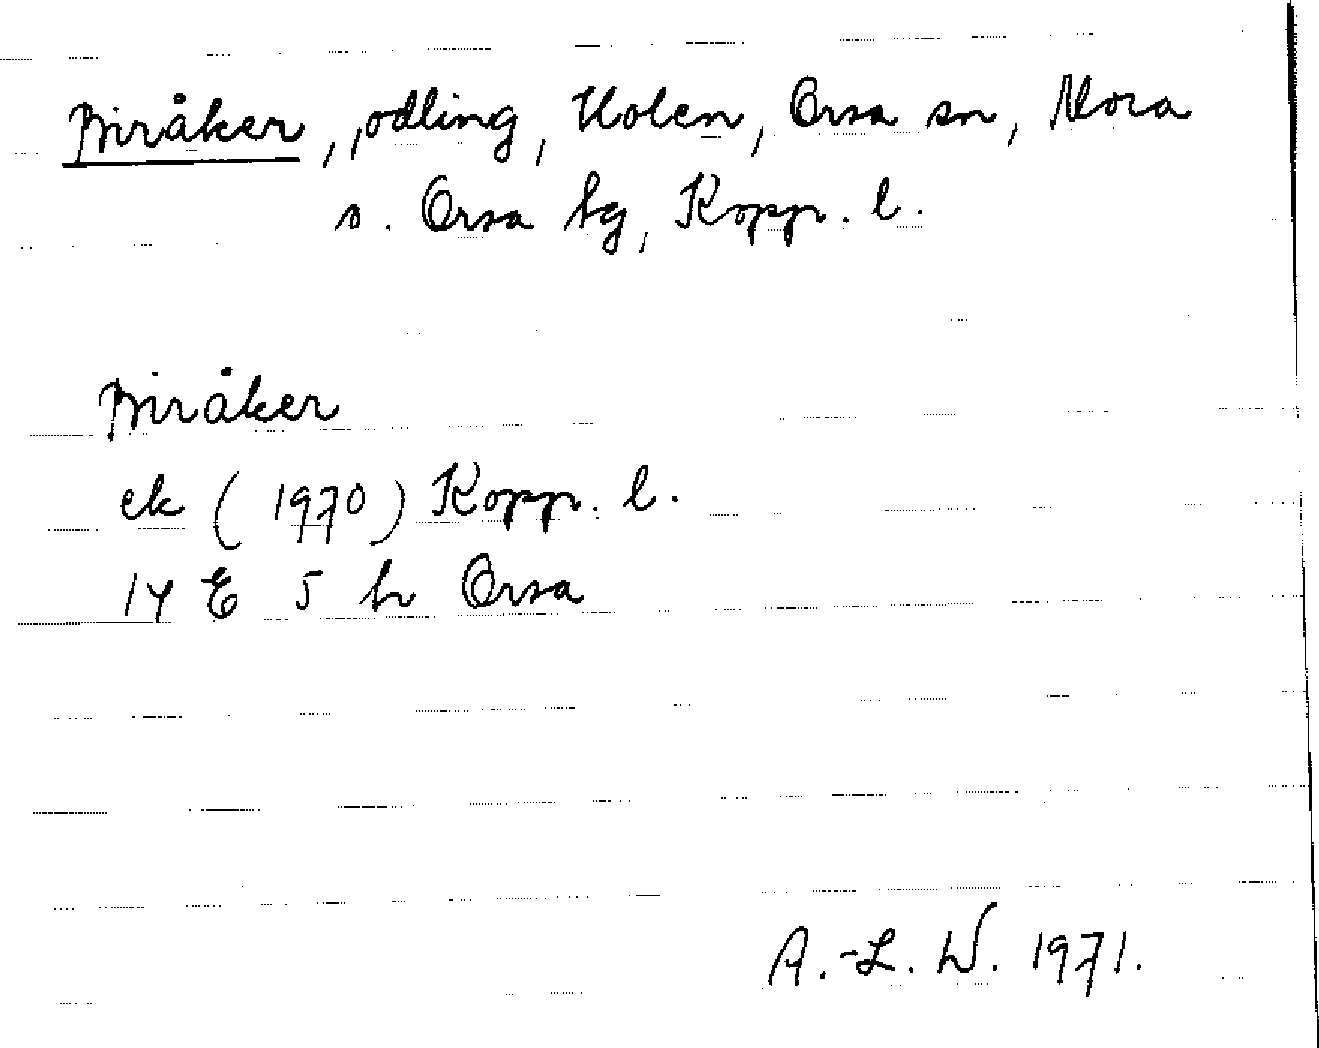 Piråker, odling, Holen, Orsa sn, Mora
s. Orsa tg, Kopp. l.
Piråker
ek (1970) Kopp. l.
14 E 5 h Orsa
A.-L. W. 1971.